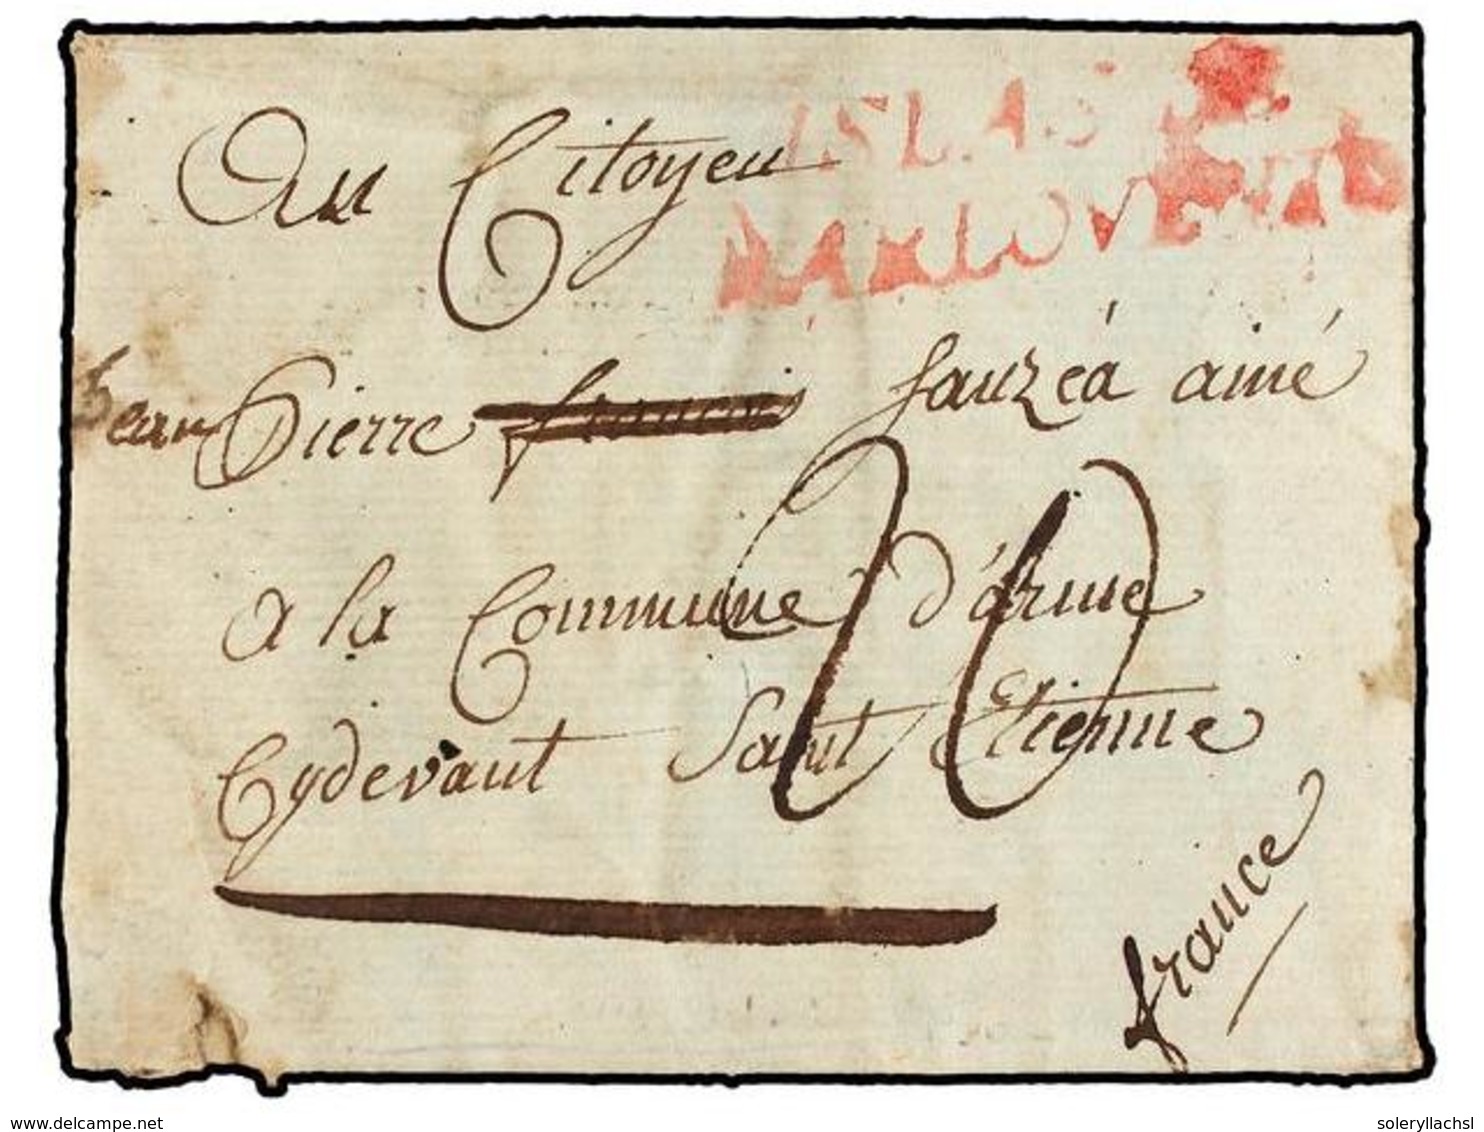 ISLAS DE
BARLOVENTO
Au Citoyen
Jean Pierre francois fauzéa ainé
a la Commune d'árme
Cydevant Saint Etienne
france
delcampe.net
soleryllachsl